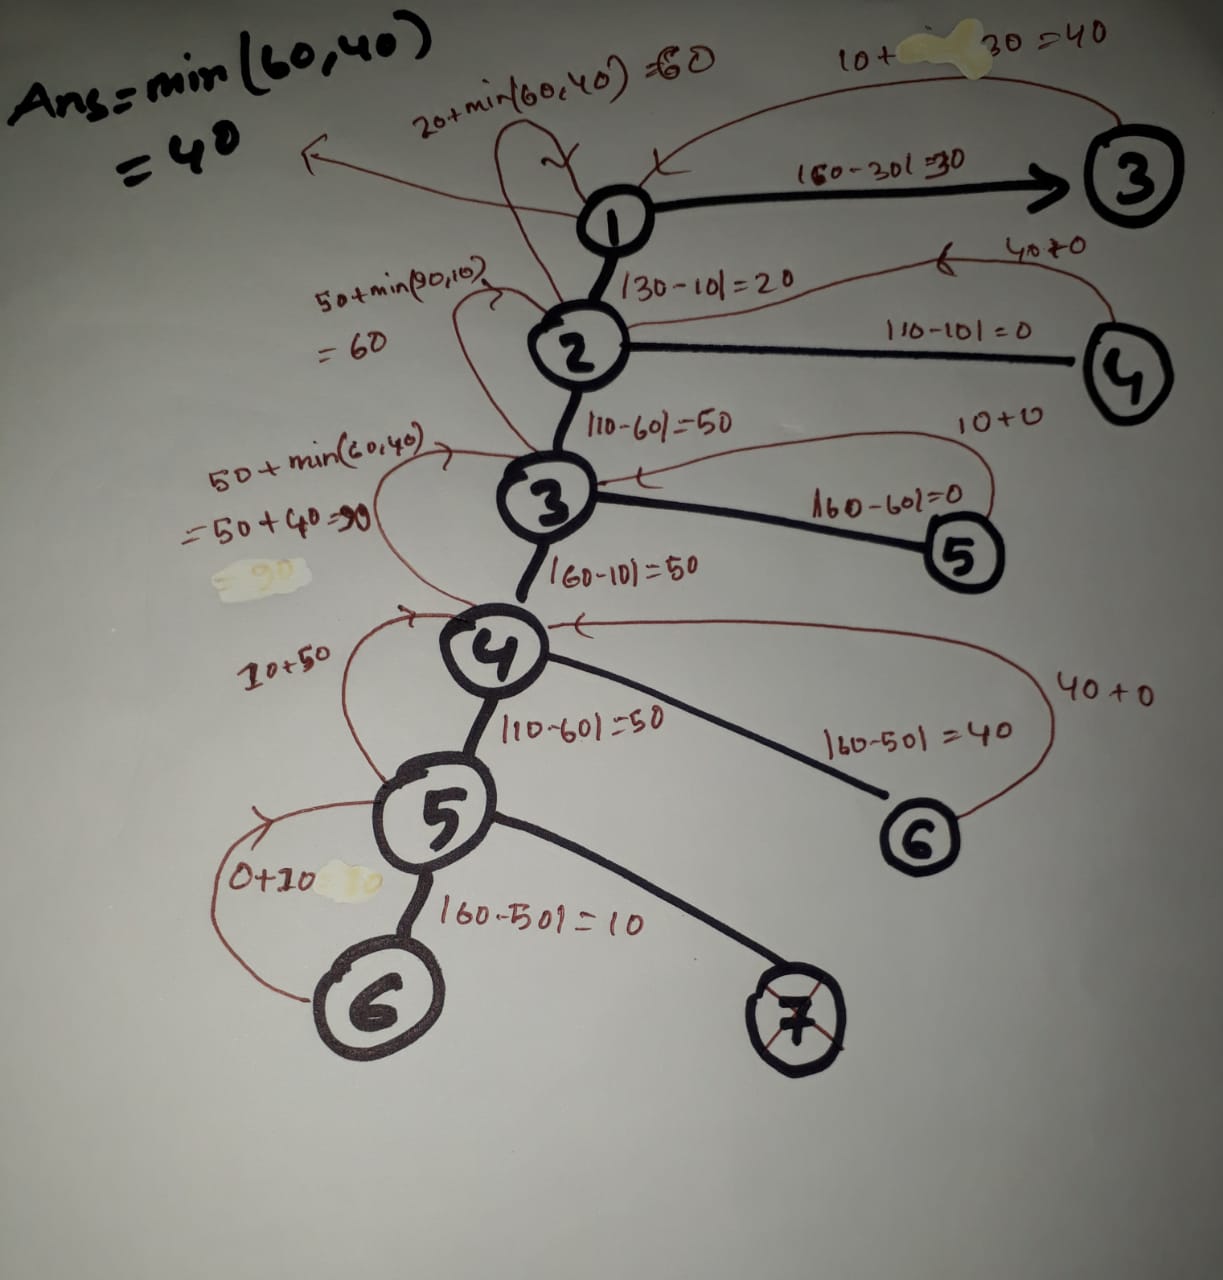 Ans = min(60,40)
= 40
20+min(60,40) =60
10+ 30 =40
1
|60-30| =30
3
|30-10|=20
40+0
50+min(90,10)
= 60
2
|10-10|=0
4
|10-60|=50
10+0
50 + min(60,40)
= 50 + 40 =90
= 90
3
|60-60|=0
5
|60-10|=50
10+50
4
40+0
|10-60|=50
|60-50| =40
5
6
0+10
|60-50|=10
6
7